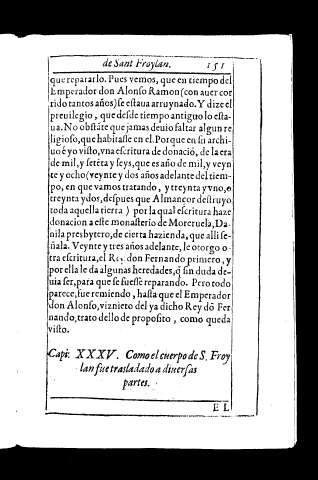 de Sant Froylan. 151
que repararlo. Pues vemos, que en tiempo del
Emperador don Alonso Ramon (con auer cor
rido tantos años) se estaua arruynado. Y dize el
preuilegio, que desde tiempo antiguo lo esta-
ua. No obstãte que jamas deuio faltar algun re
ligioso, que habitasse en el. Porque en su archi-
uo è yo visto, vna escritura de donaciõ, de la era
de mil, y setẽta y seys, que es año de mil, y veyn
te y ocho (veynte y dos años adelante del tiem-
po, en que vamos tratando, y treynta y vno, o
treynta y dos, despues que Almançor destruyo
toda aquella tierra) por la qual escritura haze
donacion a este monasterio de Moreruela, Da-
nila presbytero, de cierta hazienda, que alli se-
ñala. Veynte y tres años adelante, le otorgo o
tra escritura, el Rey don Fernando primero, y
por ella le da algunas heredades, q̃ sin duda de-
uia ser, para que se fuesse reparando. Pero todo
parece, fue remiendo, hasta que el Emperador
don Alonso, viznieto del ya dicho Rey dõ Fer-
nando, trato dello de proposito, como queda
visto.
Capi. XXXV. Como el cuerpo de S. Froy
lan fue trasladado a diuersas
partes.
EL